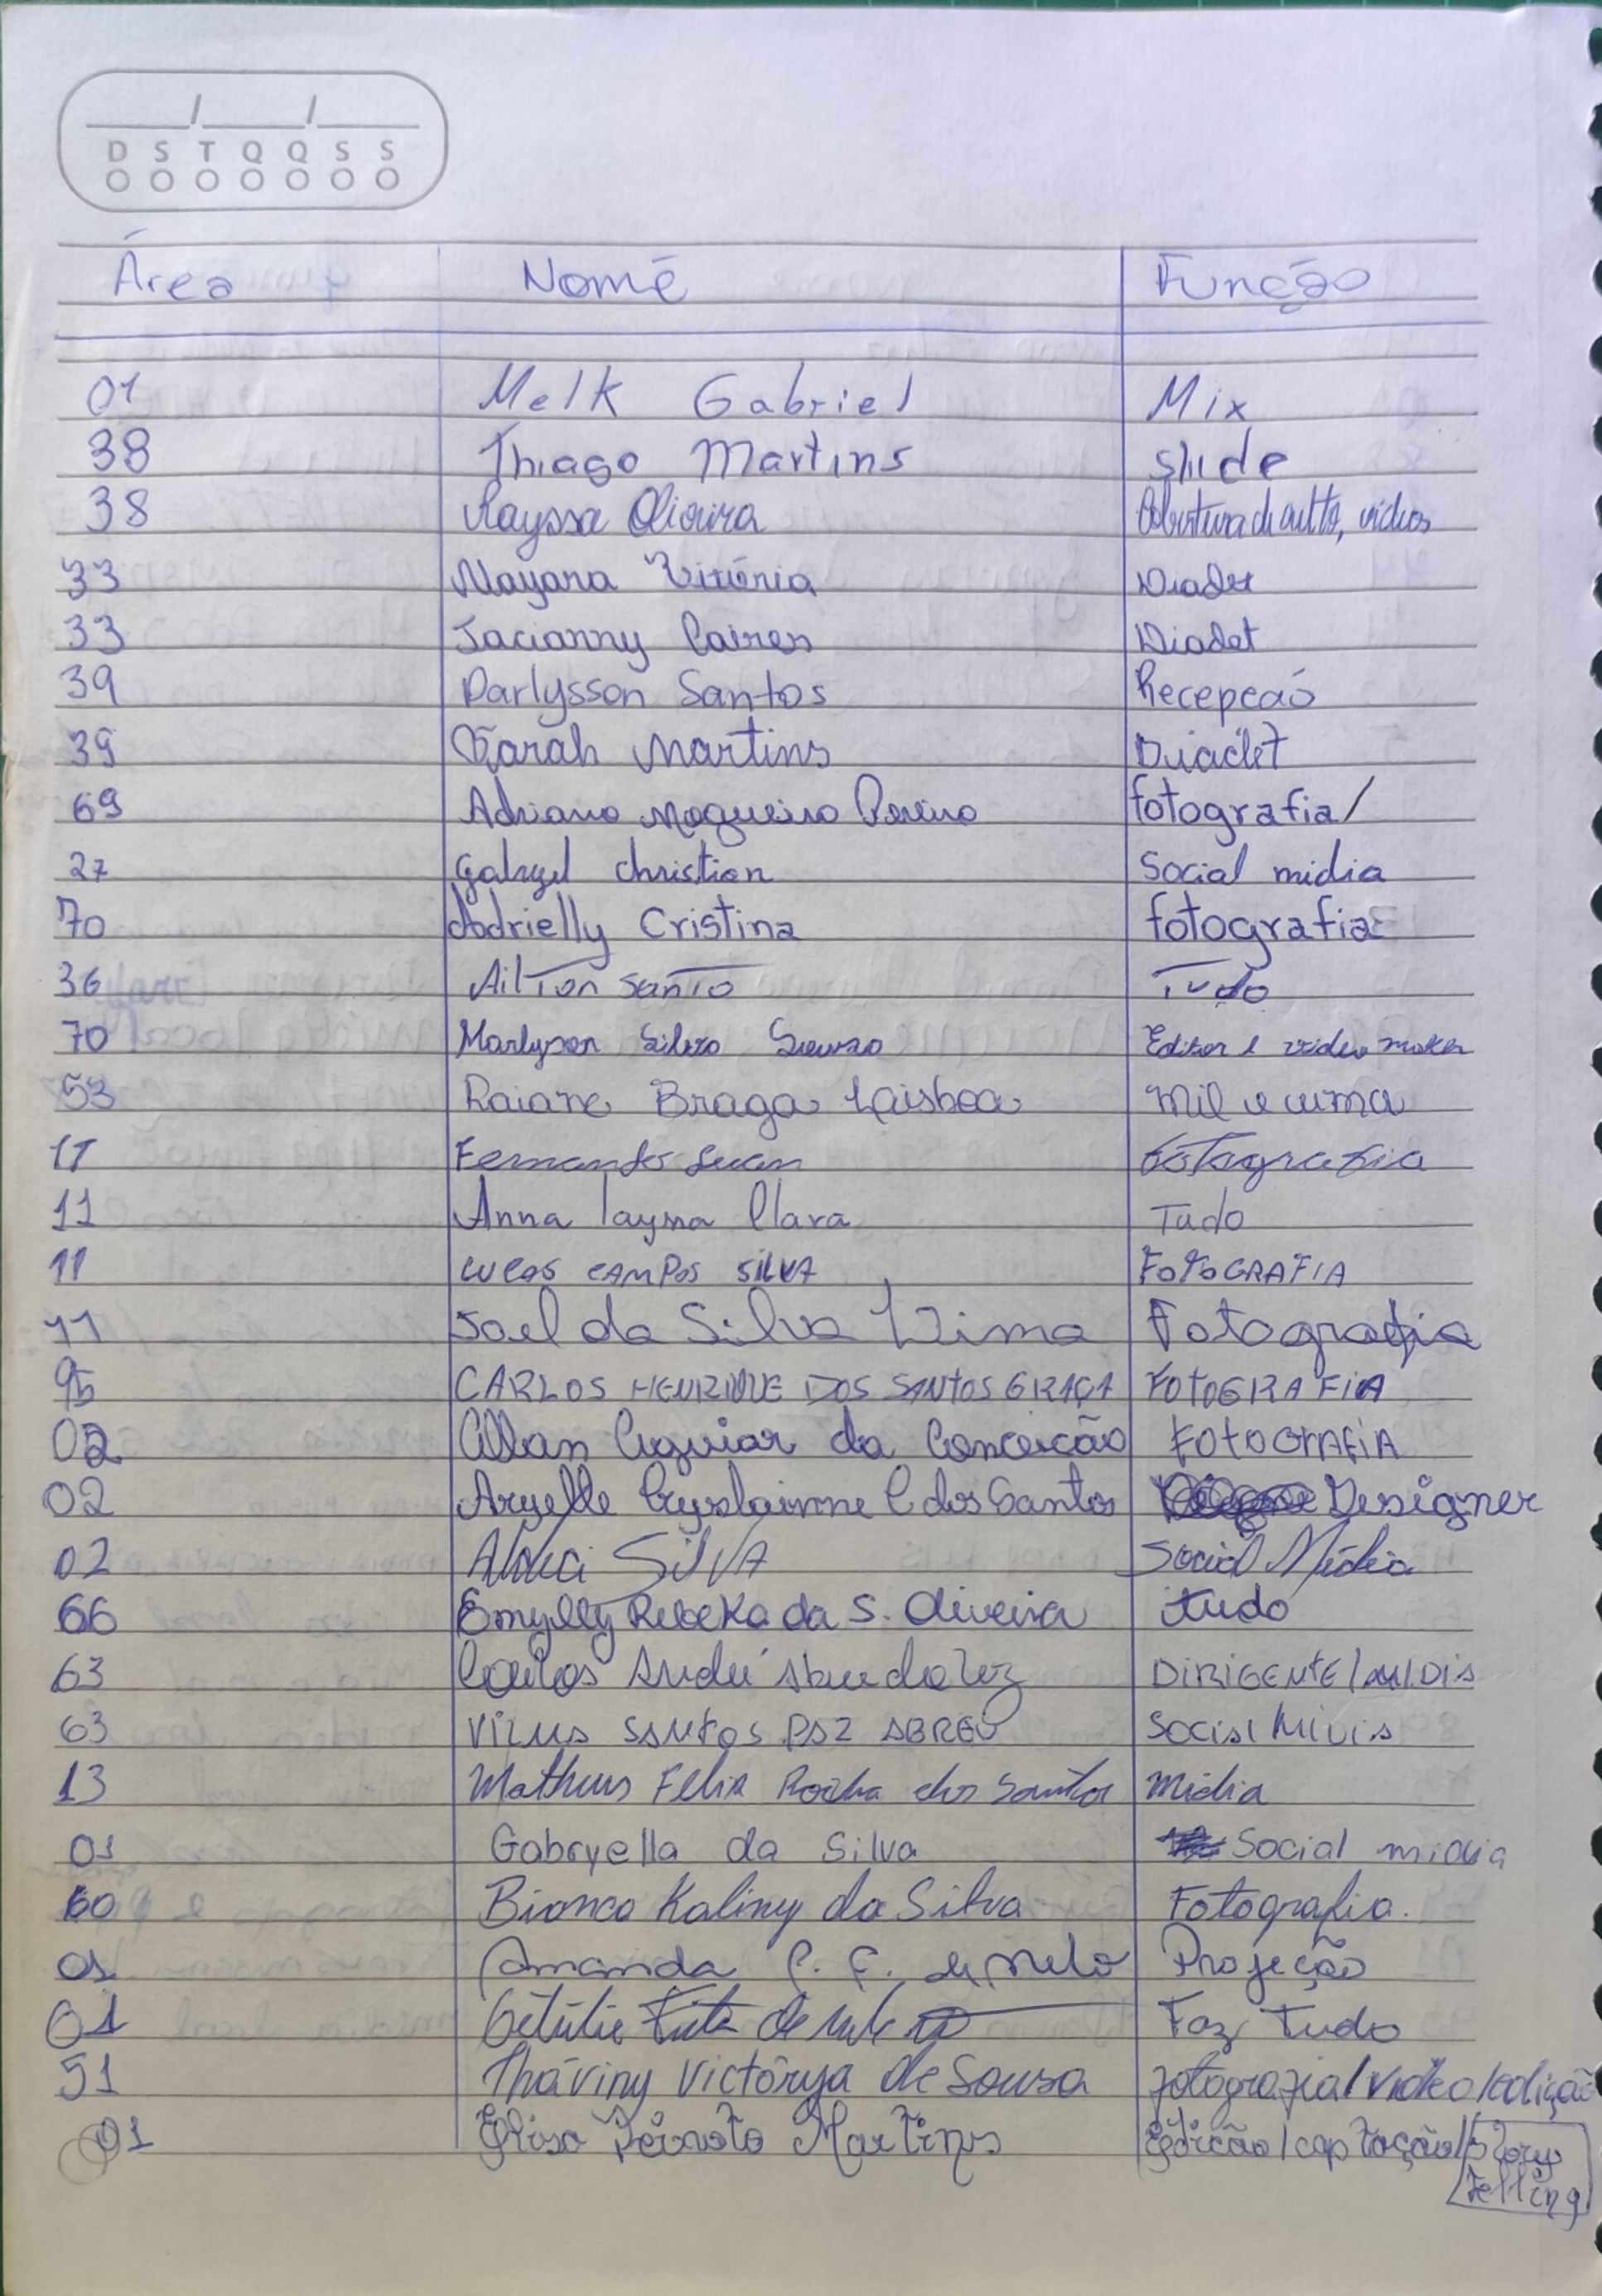 D S T Q Q S S
Área Nome Função
01 Melk Gabriel Mix
38 Thiago Martins Slide
38 Rayssa Oliveira Cobertura de culto, vídeos
33 Nayana Vitória Diadet
33 Jacianny Caires Diadet
39 Darlysson Santos Recepcaó
39 Sarah Martins Diadet
69 Adriano Nogueira Pereira fotografia/
27 Gabryel christian Social midia
70 Adrielly Cristina fotografia
36 Ailton Santo Tudo
70 Marlyson Souza Editor e video maker
53 Raiane Braga Laisboa Mil e uma
11 Fernando Luan fotografia
11 Anna Taysa Clara Tudo
11 LUCAS CAMPOS SILVA FOTOGRAFIA
11 Joel da Silva Lima Fotografia
95 CARLOS HENRIQUE DOS SANTOS GRAÇA FOTOGRAFIA
02 Allan Aguiar da Conceicão FOTOGRAFIA
02 Aryelle Cryslainne C dos Santos Designer
02 SilVA Social Mídia
66 Emylly Rebeka da S. Oliveira tudo
63 Carlos André DIRIGENTE
63 SANTOS PAZ ABREU Social Midia
13 Matheus Felix Rocha dos Santos Mídia
01 Gabryella da Silva Social midia
60 Bianca Kaliny da Silva Fotografia.
01 Amanda C. F. de Melo Projeção
01 Getúlio de Faz Tudo
51 Tháviny Victórya de Sousa fotografia/video/edição
01 Elisa Peixoto Martins Edição/captação/Story
Telling